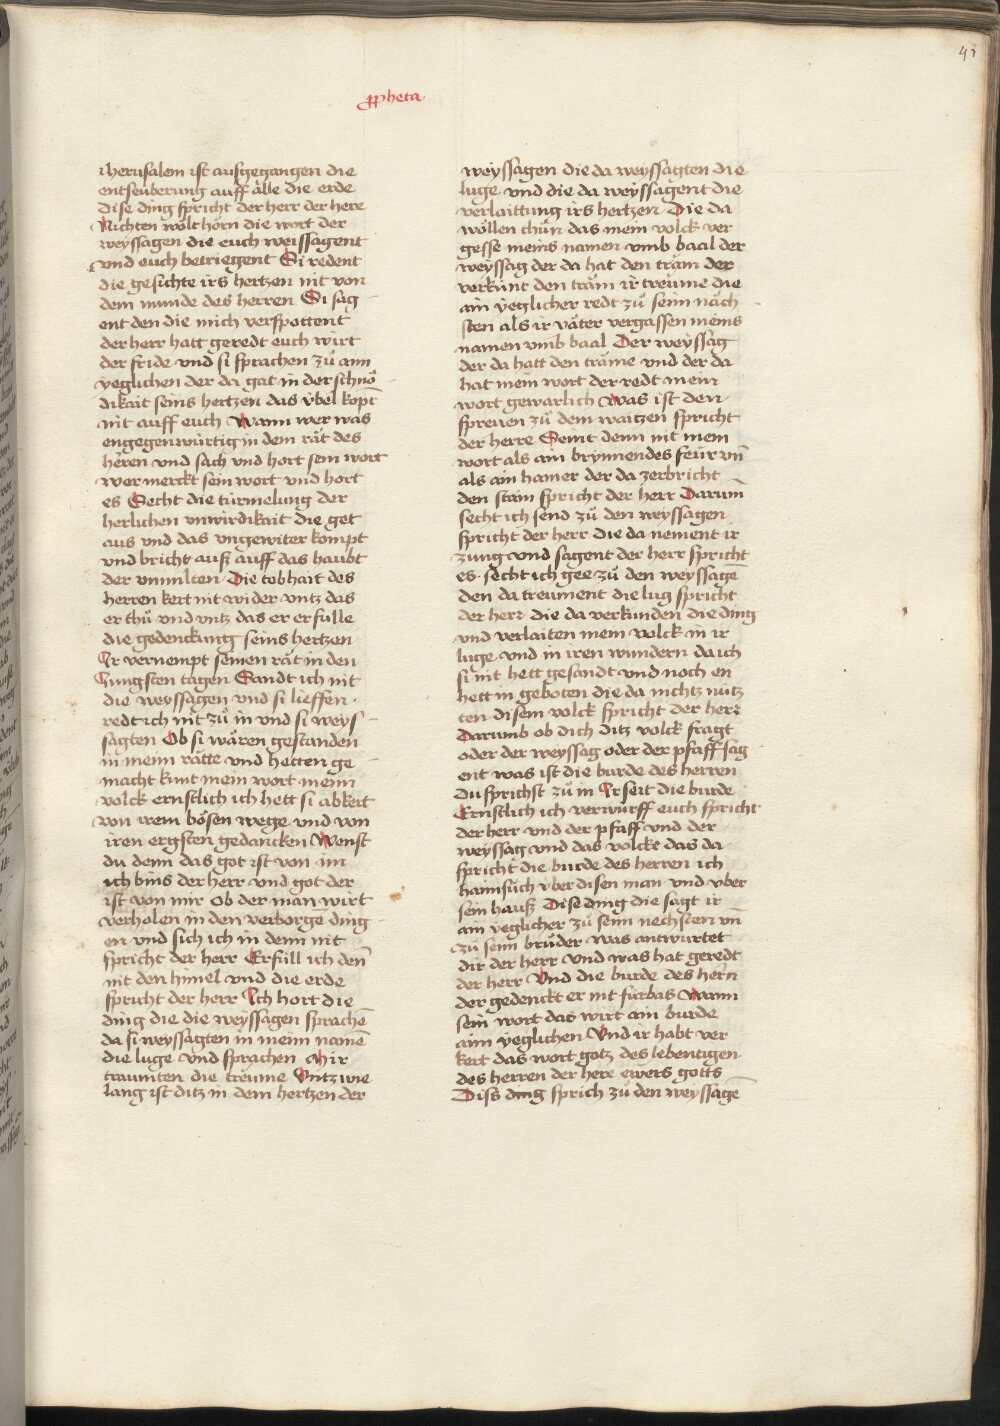 41
ꝓpheta
iherusalem ist ausgegangen die
entseüberung auff alle die erde
dise ding spricht der herr der here
Nichten wölt hörn die wort der
weyssagen die euch weissagent
vnd euch betriegent Si redent
die gesichte irs hertzen nit von
dem munde des herren Si sag
ent den die mich verspottent
der herr hatt geredt euch wirt
der fride vnd si sprachen zů aim
yeglichen der da gat in der schnö
dikait seins hertzen das v̈bel kopt
nit auff euch Wann wer was
engegenwürtig in dem rät des
heren vnd sach vnd hort sein wort
wer merckt sein wort vnd hort
es Secht die türmelung der
herlichen vnwirdikait die get
aus vnd das vngewiter kompt
vnd bricht auß auff das haubt
der vnmilten Die tobhait des
herren kert nit wider vntz das
er thů vnd vntz das er erfulle
die gedenckung seins hertzen
Ir vernempt seinen rät in den
Jungsten tagen Sandt ich nit
die weyssagen vnd si lieffen
redt ich nit zů in vnd si weys
sagten Ob si wären gestanden
in meim rätte vnd hetten ge
macht kunt mein wort meim
volck ernstlich ich hett si abkert
von irem bösen wege vnd von
iren ergsten gedancken Wenst
du denn das got ist von im
ich bins der herr vnd got der
ist von mir ob der man wirt
verholen in den verborgē ding
en vnd sich ich in denn nit
spricht der herr Erfüll ich den̄
nit den himel vnd die erde
spricht der herr Ich hort die
ding die die weyssagen sprachē
da si weyssagten in meim namē
die luge vnd sprachen Mir
traumten die treume Vntz wie
lang ist ditz in dem hertzen der
weyssagen die da weyssagten die
luge vnd die da weyssagent die
verlaittung irs hertzen Die da
wöllen thůn das mein volck ver
gesse meins namen vmb baal der
weyssag der da hat den träm der
verkünt den träm ir treüme die
ain yeglicher redt zů seim näch
sten als ir väter vergassen meins
namen vmb baal Der weyssag
der da hatt den träme vnd der da
hat mein wort der redt mein
wort gewarlich Was ist den
spreuen zů dem waitzen spricht
der herre Seint denn nit mein
wort als ain brynnendes feür vn̄
als ain hamer der da zerbricht
den stain spricht der herr Darum̄
secht ich send zů den weyssagen
spricht der herr die da nement ir
zung vnd sagent der herr spricht
es secht ich gee zů den weyssagē
den da treument die lug spricht
der herr die da verkunden die ding
vnd verlaiten mein volck in ir
luge vnd in iren wundern da ich
si nit hett gesandt vnd noch en
hett in geboten die da nichtz nütz
ten disem volck spricht der herr
Darumb ob dich ditz volck fragt
oder der weyssag oder der pfaff sag
ent was ist die burde des herren
du sprichst zů in Ir seit die burde
Ernstlich ich verwürff euch spricht
der herr vnd der pfaff vnd der
weyssag vnd das volcke das da
spricht die burde des herren ich
haimsůch v̈ber disen man vnd v̈ber
sein hauß Dise ding die sagt ir
ain yeglicher zů seim nechsten vn̄
zů seim brůder was antwurtet
dir der herr vnd was hat geredt
der herr Vnd die burde des hern
der gedenckt er nit fürbas Wann
sein wort das wirt ain burde
aim yeglichen Vnd ir habt ver
kert das wort gotz des lebentigen
des herren der here ewers gotts
Diss ding sprich zů den weyssagē